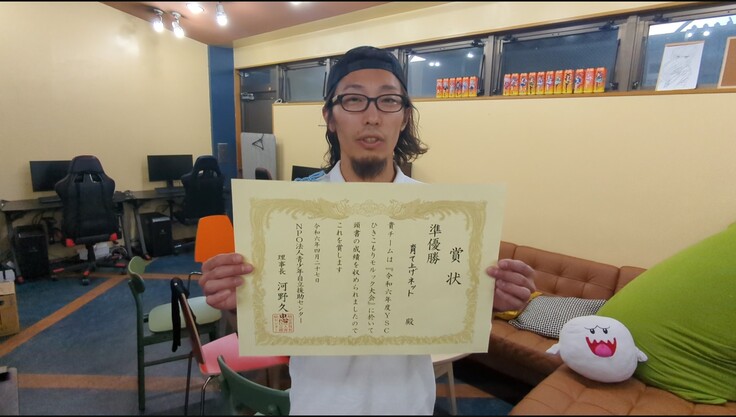 賞状
準優勝
育て上げネット 殿
貴チームは『令和六年度YSC
ひきこもりモルック大会』に於いて
頭書の成績を収められましたので
これを賞します
令和六年四月二十七日
NPO法人青少年自立援助センター
理事長 河野久忠